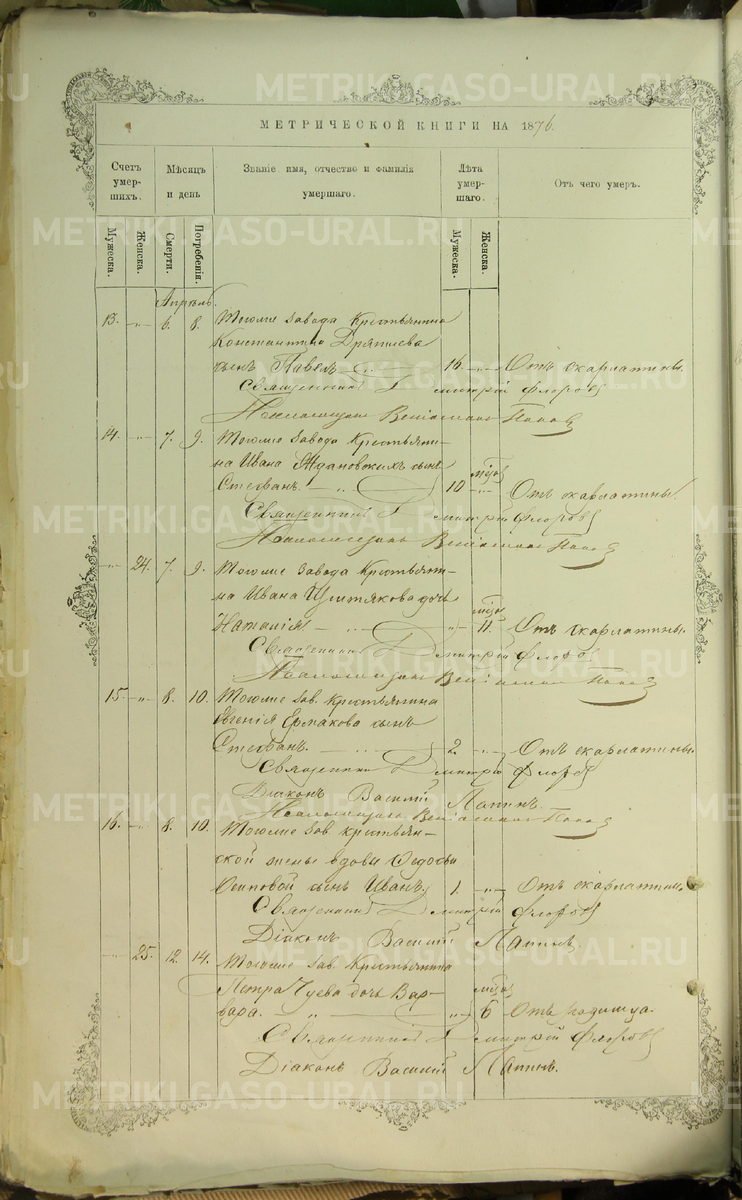 МЕТРИЧЕСКОЙ КНИГИ НА 1876.
Счетъ умер-шихъ.
Мѣсяцъ и день
Званіе имя, отчество и фамилія умершаго.
Лѣта умер-шаго.
Отъ чего умеръ.
Мужеска.
Женска.
Смерти.
Погребенія.
Мужеска.
Женска.
Апрѣль.
13. -„- 6. 8. Тогоже завода Крестьянина
Константина
сынъ Павелъ 16. -„- Отъ скарлатины.
Священникъ Дмитрій Флоровъ
Псаломщикъ Веніаминъ Поповъ
14. -„- 7. 9. Тогоже завода Крестьяни-
на Ивана Ждановскихъ сынъ
Стефанъ. мѣся 10 -„- Отъ скарлатины.
Священникъ Дмитрій Флоровъ
Псаломщикъ Веніаминъ Поповъ
-„- 24. 7. 9. Тогоже завода Крестьяни-
на Ивана дочь
Наталія мѣся -„- 11. Отъ скарлатины.
Священникъ Дмитрій Флоровъ
Псаломщикъ Веніаминъ Поповъ
15. -„- 8. 10. Тогоже зав. Крестьянина
Евгенія Ермакова сынъ
Стефанъ. 2. -„- Отъ скарлатины.
Священникъ Дмитрій Флоровъ
Діаконъ Василій Лапинъ.
Псаломщикъ Веніаминъ Поповъ
16. -„- 8. 10. Тогоже зав. крестьян-
ской жены вдовы Федосьи
Осиповой сынъ Иванъ 1. -„- Отъ скарлатины.
Священникъ Дмитрій Флоровъ
Діаконъ Василій Лапинъ.
-„- 25. 12. 14. Тогоже зав. Крестьянина
Петра Чуева дочь Вар-
вара. мѣся -„- 6 Отъ родимца.
Священникъ Дмитрій Флоровъ
Діаконъ Василій Лапинъ.
METRIKI.GASO-URAL.RU